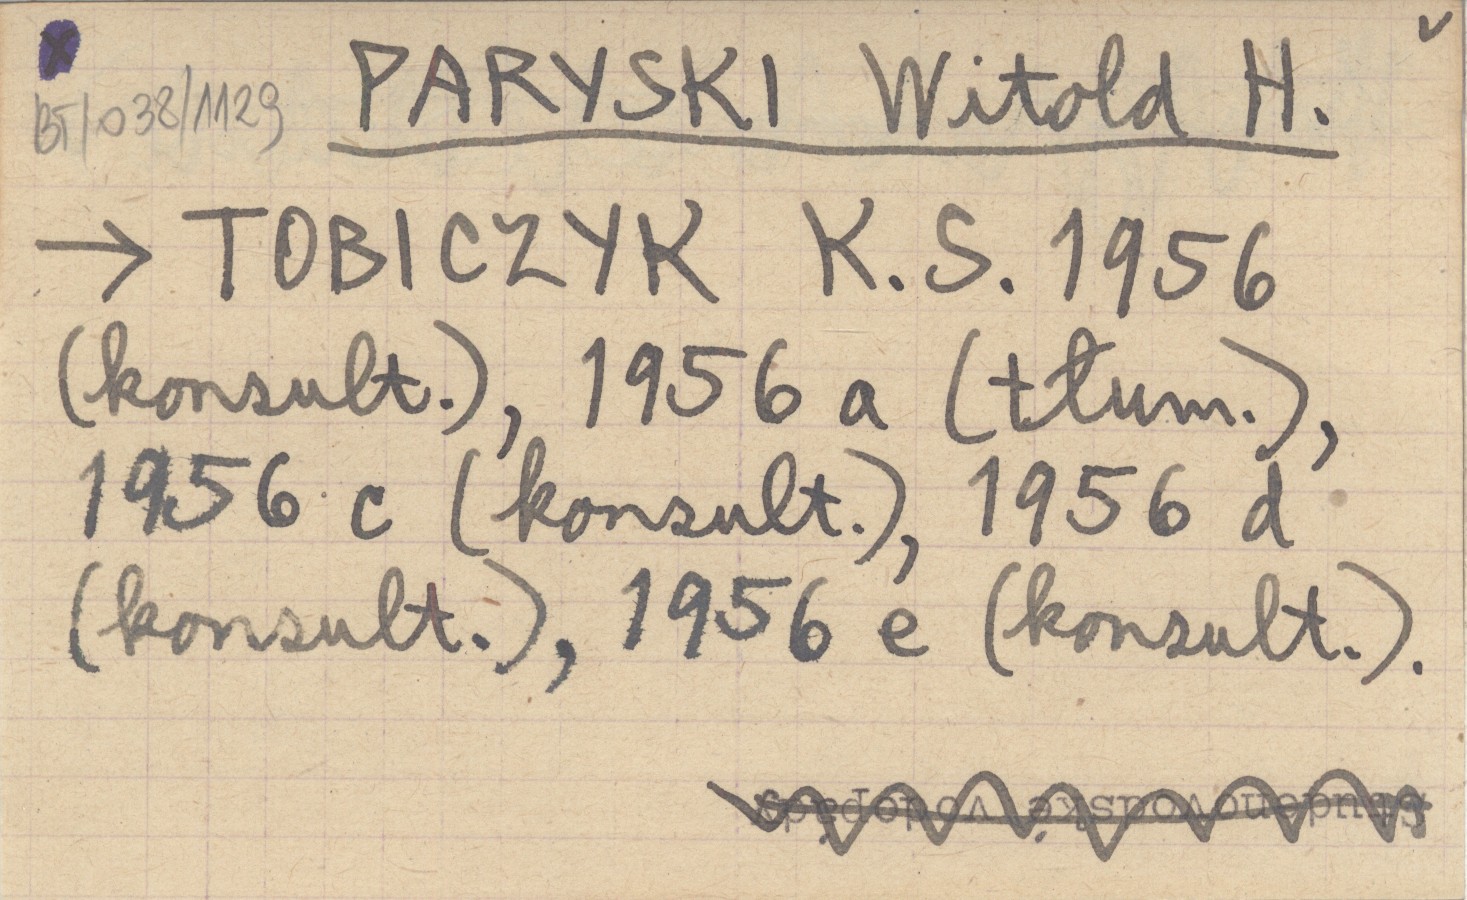 BT/038/1129
PARYSKI Witold H.
→ TOBICZYK K.S. 1956
(konsult.), 1956 a (tłum.),
1956 c (konsult.), 1956 d
(konsult.), 1956 e (konsult.).
Studenovodské vodopády